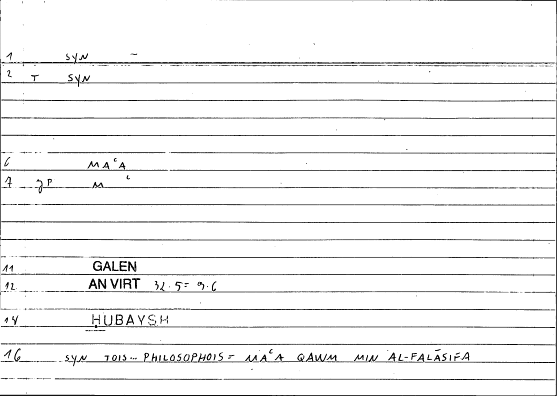 1 SYN –
2 T SYN
6 MAᶜA
7 gP M ᶜ
11 GALEN
12 AN VIRT 32.5 = 9.6
14 ḤUBAYSH
16 SYN TOIS... PHILOSOPHOIS = MAᶜA QAWM MIN AL-FALĀSIFA